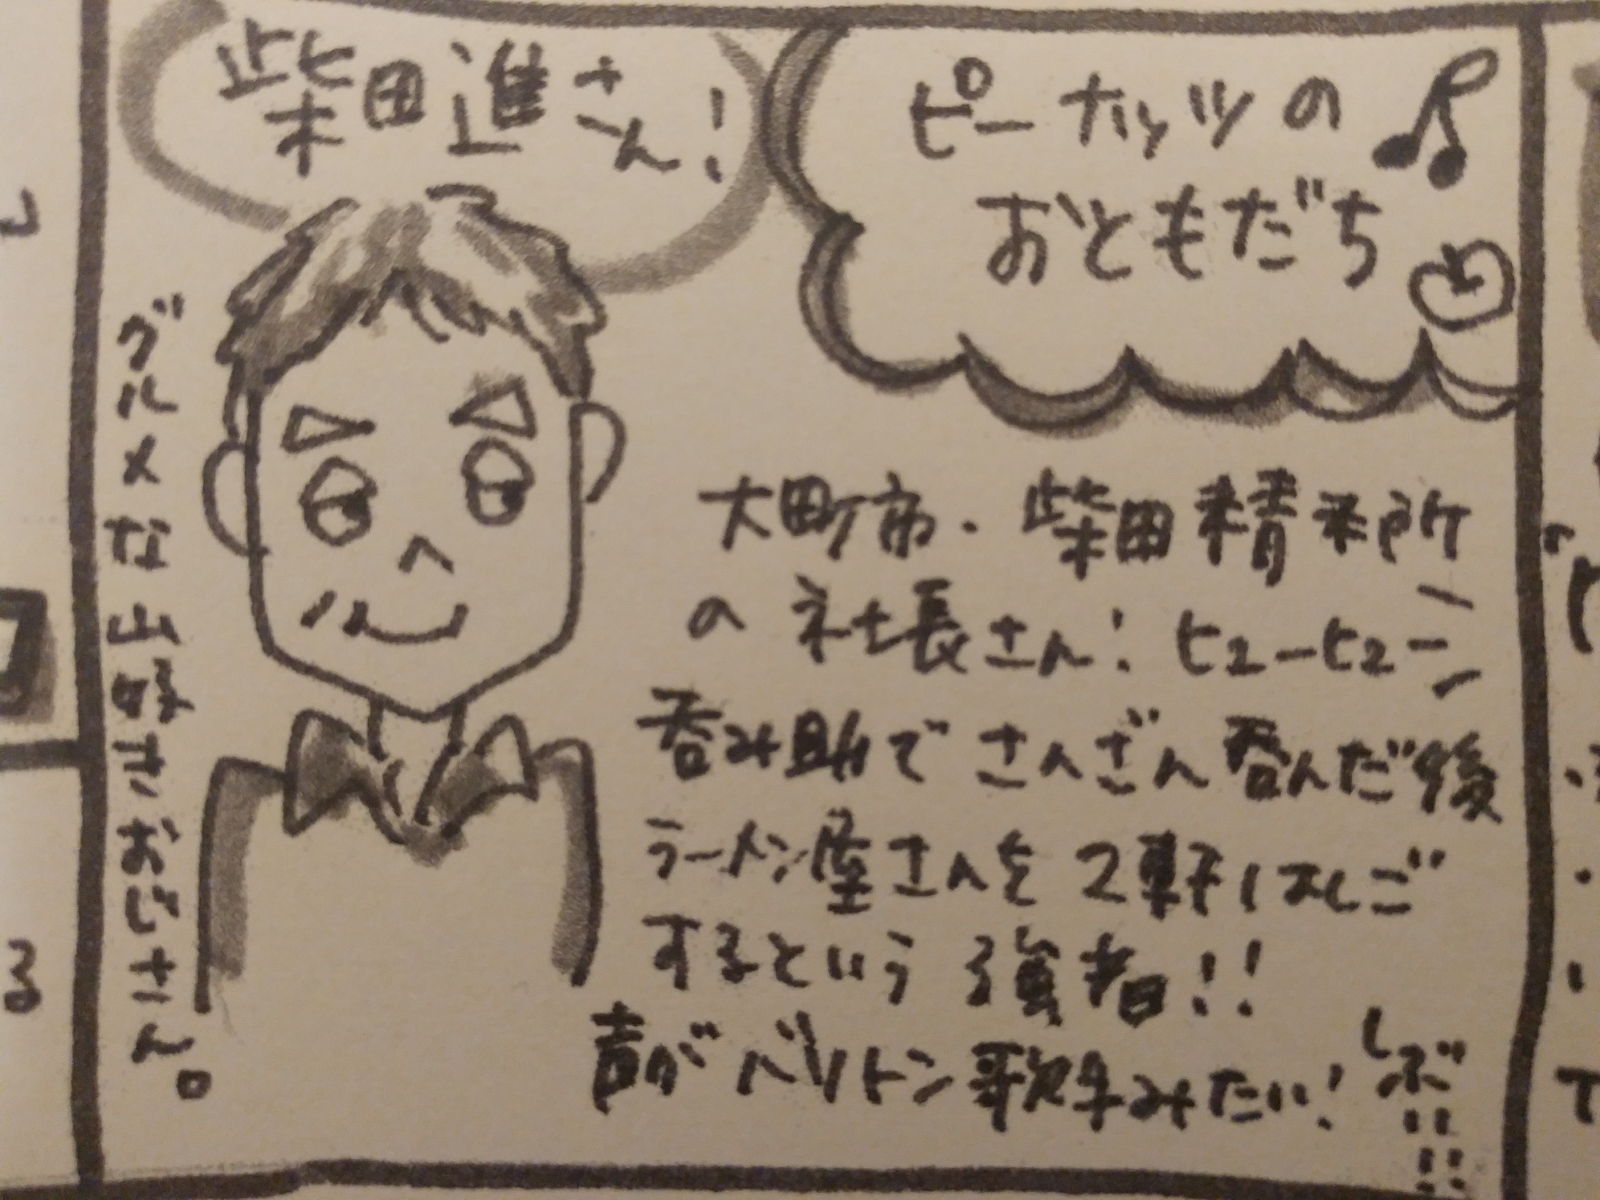 柴田進さん!
ピーナッツの
おともだち
グルメな山好きおじさん。
大町市・柴田精米所
の社長さん!ヒューヒュー
呑み助でさんざん呑んだ後
ラーメン屋さんを2軒はしご
するという強者!!
声がバリトン歌手みたい!
しぶい!!